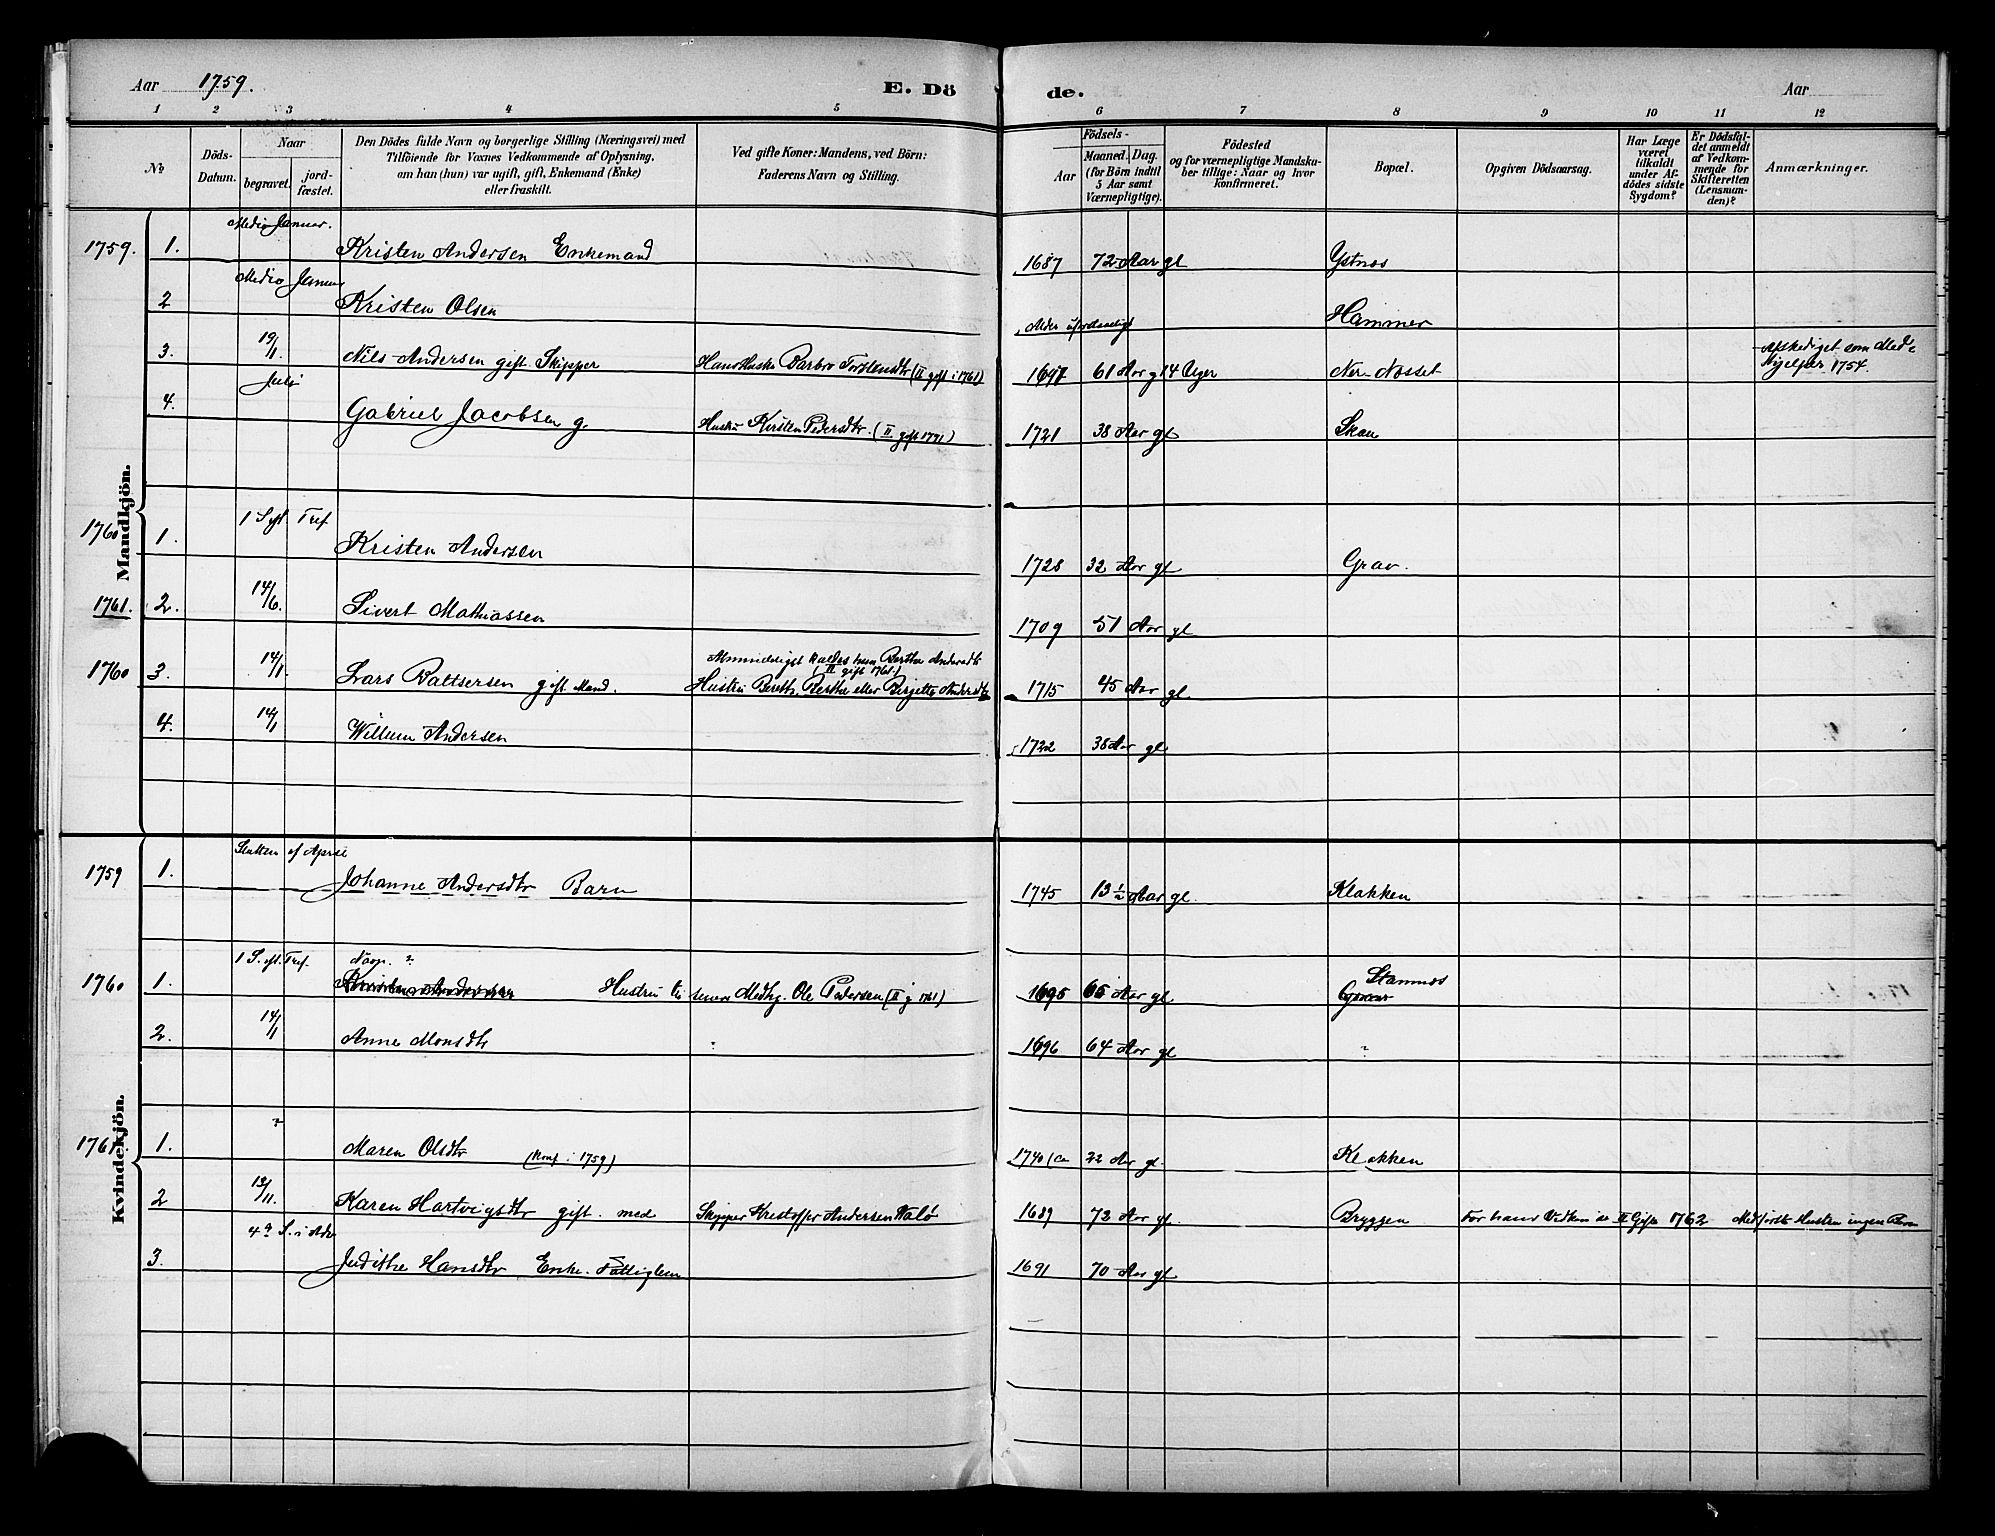 Aar 1759. E. Dö de. Aar
1 2 3 4 5 6 7 8 9 10 11 12
No
Döds-Datum.
Naar
begravet. jord-fæstet.
Den Dödes fulde Navn og borgerlige Stilling (Næringsvei) med
Tilföiende for Voxnes Vedkommende af Oplysning,
om han (hun) var ugift, gift, Enkemand (Enke)
eller fraskilt.
Ved gifte Koner: Mandens, ved Börn:
Faderens Navn og Stilling.
Födsels-
Aar
Maaned. Dag.
(for Börn indtil
5 Aar samt
Værnepligtige).
Födested
og for værnepligtige Mandska-
ber tillige: Naar og hvor
konfirmeret.
Bopæl.
Opgiven Dödsaarsag.
Har Læge
været
tilkaldt
under Af-
dödes sidste
Sygdom?
Er Dödsfal-
det anmeldt
af Vedkom-
mende for
Skifteretten
(Lensman-
den)?
Anmærkninger.
Mandkjön.
Medio Januar.
1759. 1. Kristen Andersen Enkemand 1687 72 Aar gl Ystnes
Medio Januar
2 Kristen Olsen Alder Hammer
19/1.
3. Nils Andersen gift. Skipper Barbro Torstensdtr (II gift i 1761) 1697 61 Aar gl 4 Uger Ner-Nosset
Afskediget som Med-
hjelper 1754.
Juli
4. Gabriel Jacobsen g. Hustru Kirsten Pedersdtr. (II gift 1771) 1721 38 Aar gl Skan
1 S eft. Tref
1760 1. Kristen Andersen 1728 32 Aar gl Grav.
14/6.
1761. 2. Sivert Mathiassen 1709 51 Aar gl
14/1. Almindeligst kaldes hun Berthe Andersdtr
(II gift 1761)
1760 3. Lars Baltsersen gift. Mand. Hustru Bereth, Berthe eller Birgitte Andersdtr 1715 45 Aar gl
14/1
4. Willum Andersen 1722 38 Aar gl
Kvindekjön.
Slutten af April
1759 1. Johanne Andersdtr Barn 1745 13 1/2 Aar gl. Klakken
1 S. eft. Tref. Navn. ? Stamnes
1760 1. Hustru til senere Medhj. Ole Pedersen (II g 1761) 1695 65 Aar gl
14/1
2. Anne Monsdtr ? 1696 64 Aar gl ?
?
1761 1. Maren Olsdtr (Konf. i 1759) 1740 (ca 22 Aar gl. Klakken
13/11.
2 Karen Hartvigsdtr gift. med Skipper Kristoffer Andersen Walø 1689 72 Aar gl. Bryggen For hans Vedkom se II Gift 1762 Med første Hustru ingen Barn
4de S. i Adv
3. Judithe Hansdtr Enke. Fattiglem 1691 70 Aar gl